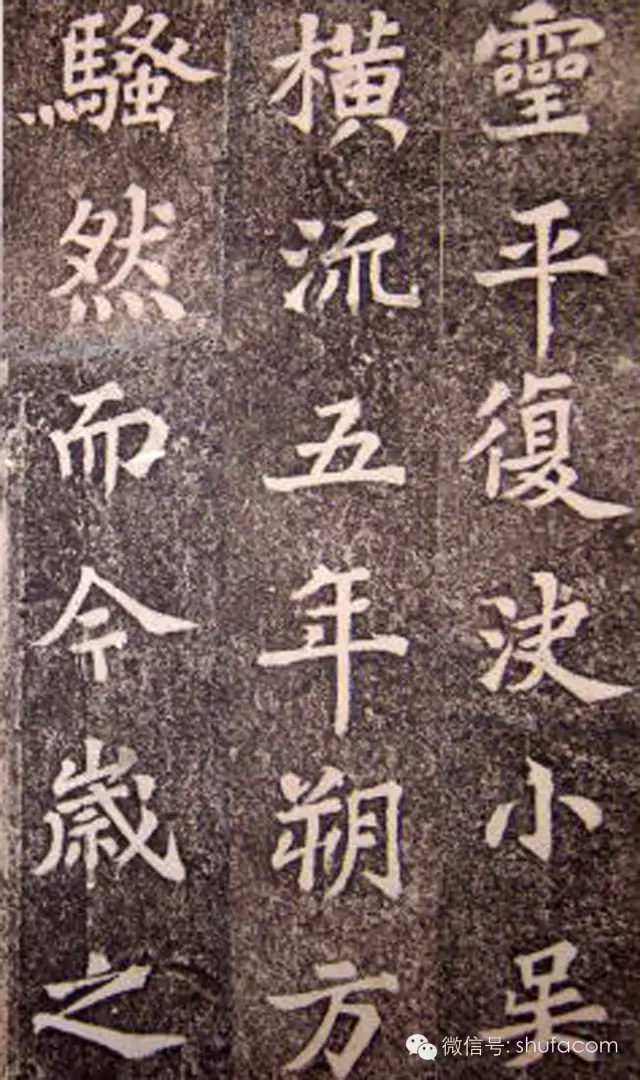 靈平復決小吴
橫流五年朔方
騷然而今歲之
微信号: shufacom